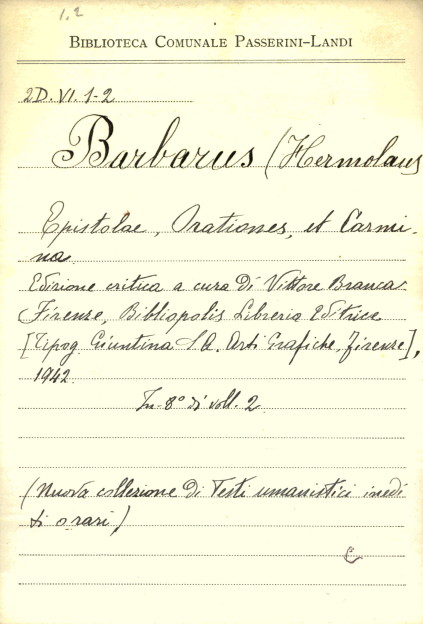 1.2
BIBLIOTECA COMUNALE PASSERINI-LANDI
2D. VI. 1-2
Barbarus (Hermolaus
Epistolae, Orationes, et Carmi-
na.
Edizione critica a cura di Vittore Branca.
Firenze, Bibliopolis Libreria Editrice
[Tipog. Giuntina S.A. Arti Grafiche, Firenze],
1942.
In-8° di voll. 2
(Nuova collezione di Testi umanistici inedi
ti o rari)
C